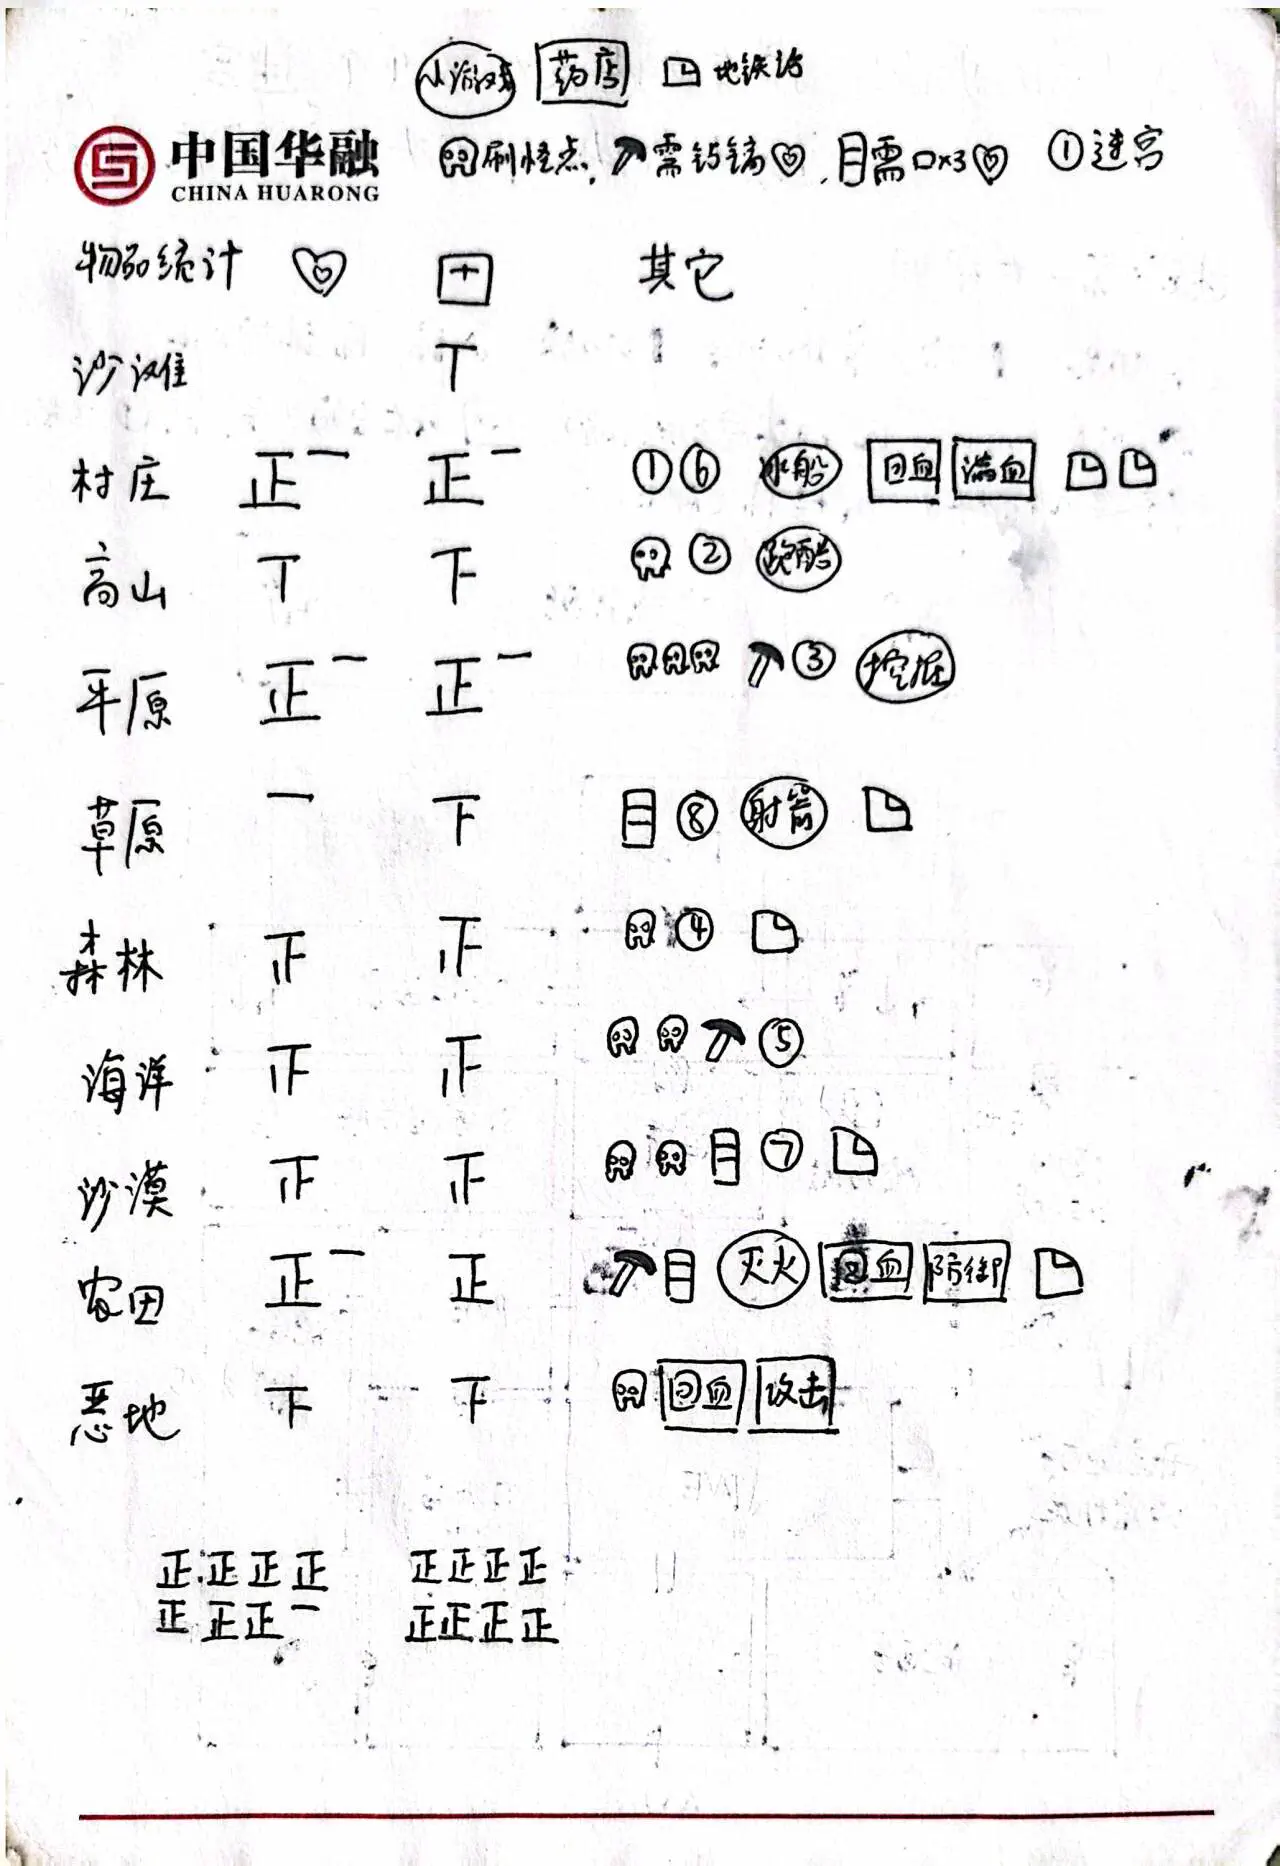 小游戏 药店 地铁站
中国华融
CHINA HUARONG
刷怪点, 需钥镐 , 需口x3 ①迷宫
物品统计 + 其它
沙滩 丅
村庄 正一 正一 ①⑥ 冰船 回血 满血
高山 丅 下 ② 跑酷
平原 正一 正一 ③ 挖掘
草原 一 下 ⑧ 射箭
森林 正 正 ④
海洋 正 正 ⑤
沙漠 正 正 ⑦
农田 正一 正 灭火 回血 防御
恶地 下 下 回血 攻击
正正正正 正正正正
正正正一 正正正正